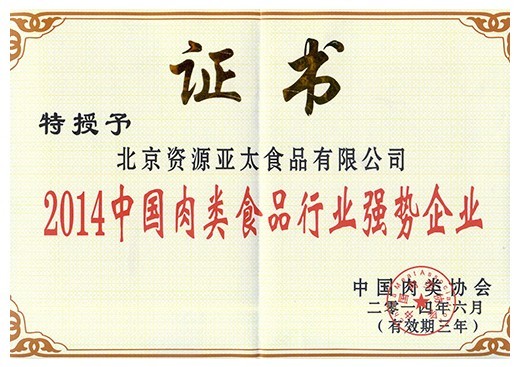 证书
特授予
北京资源亚太食品有限公司
2014中国肉类食品行业强势企业
中国肉类协会
二零一四年六月
(有效期三年)